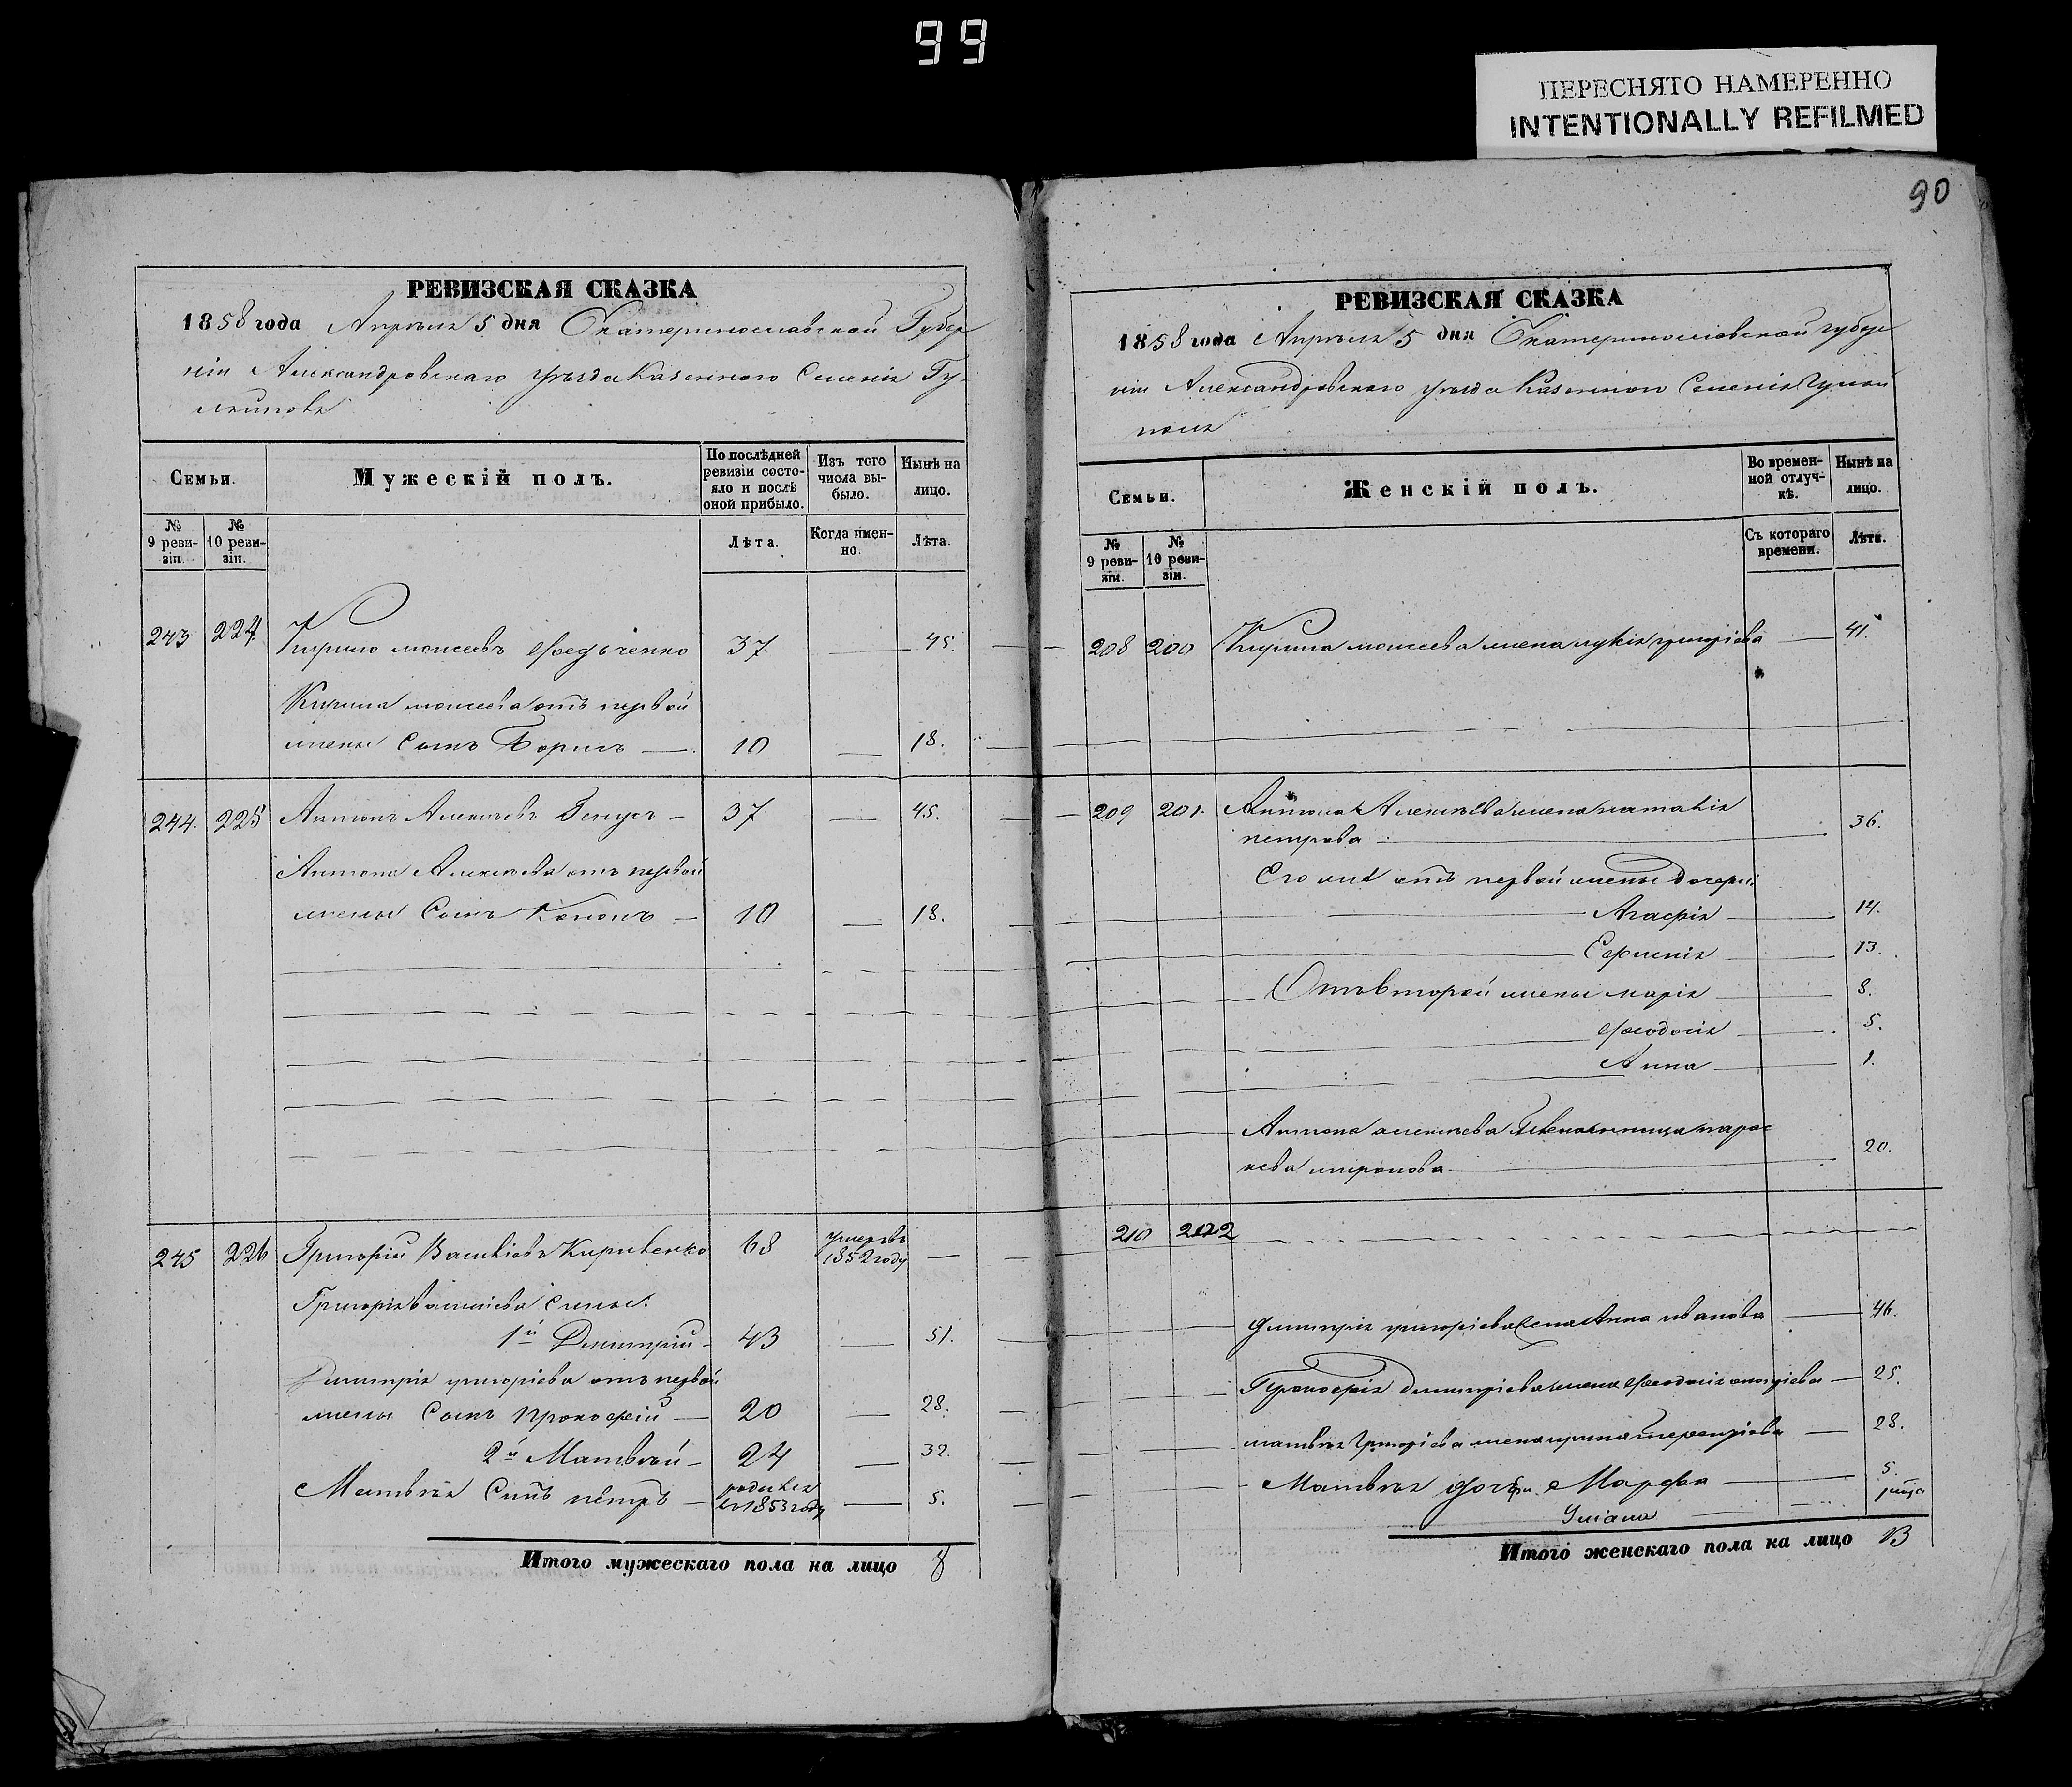 99
ПЕРЕСНЯТО НАМЕРЕННО
INTENTIONALLY REFILMED
РЕВИЗСКАЯ СКАЗКА
1858 года Апрѣля 5 дня Екатеринославской Губер
ніи Александровскаго уѣзда Казеннаго Селенія Гу-
Семьи.
Мужескій полъ.
По послѣдней ревизіи состояло и послѣ оной прибыло.
Изъ того числа выбыло.
Нынѣ на лицо.
№ 9 ревизіи.
№ 10 ревизіи.
Лѣта.
Когда именно.
Лѣта.
243 224 Кирило Моисеевъ Федьченко 37 — 45.
Кирила моисеева отъ первой
жены Сынъ Борисъ — 10 — 18.
244. 225 Антонъ Алексѣевъ — 37 — 45.
Антона Алексѣева отъ первой
жены Сынъ Кононъ — 10 — 18.
245 226 Григорій Василіевъ Кириленко 68 умеръ въ 1852 году —
Григорія Василіева Сыны.
1й Дмитрій — 43 — 51.
Дмитрія григоріева отъ первой
жены Сынъ Прокофій — 20 — 28.
2й Матвѣй — 24 — 32.
Матвѣя Сынъ пётръ — родился въ 1853 году — 5.
Итого мужескаго пола на лицо 8
90
РЕВИЗСКАЯ СКАЗКА
1858 года Апрѣля 5 дня Екатеринославской губер
ніи Александровскаго уѣзда Казеннаго Селенія Гуляй
поля
Семьи.
Женскій полъ.
Во временной отлучкѣ.
Нынѣ на лицо.
№ 9 ревизіи.
№ 10 ревизіи.
Съ котораго времени.
Лѣта.
208 200 Кирила моисеева жена лукія григоріева — 41.
209 201. Антона Алексѣева жена наталія
петрова — 36.
Его же отъ первой жены дочери:
Агафія — 14.
Евгенія — 13.
Отъ второй жены марія — 8.
Феодосія — 5.
Анна — 1.
Антона алексѣева пара-
кева миронова — 20.
210 202
Дмитрія григоріева жена Анна иванова — 46.
Прокофія димитріева жена Феодосія — 25.
матвѣя Григоріева жена ирина терентіева — 28.
Матвѣя дочери Марфа — 5.
Уліана
Итого женскаго пола на лицо 13